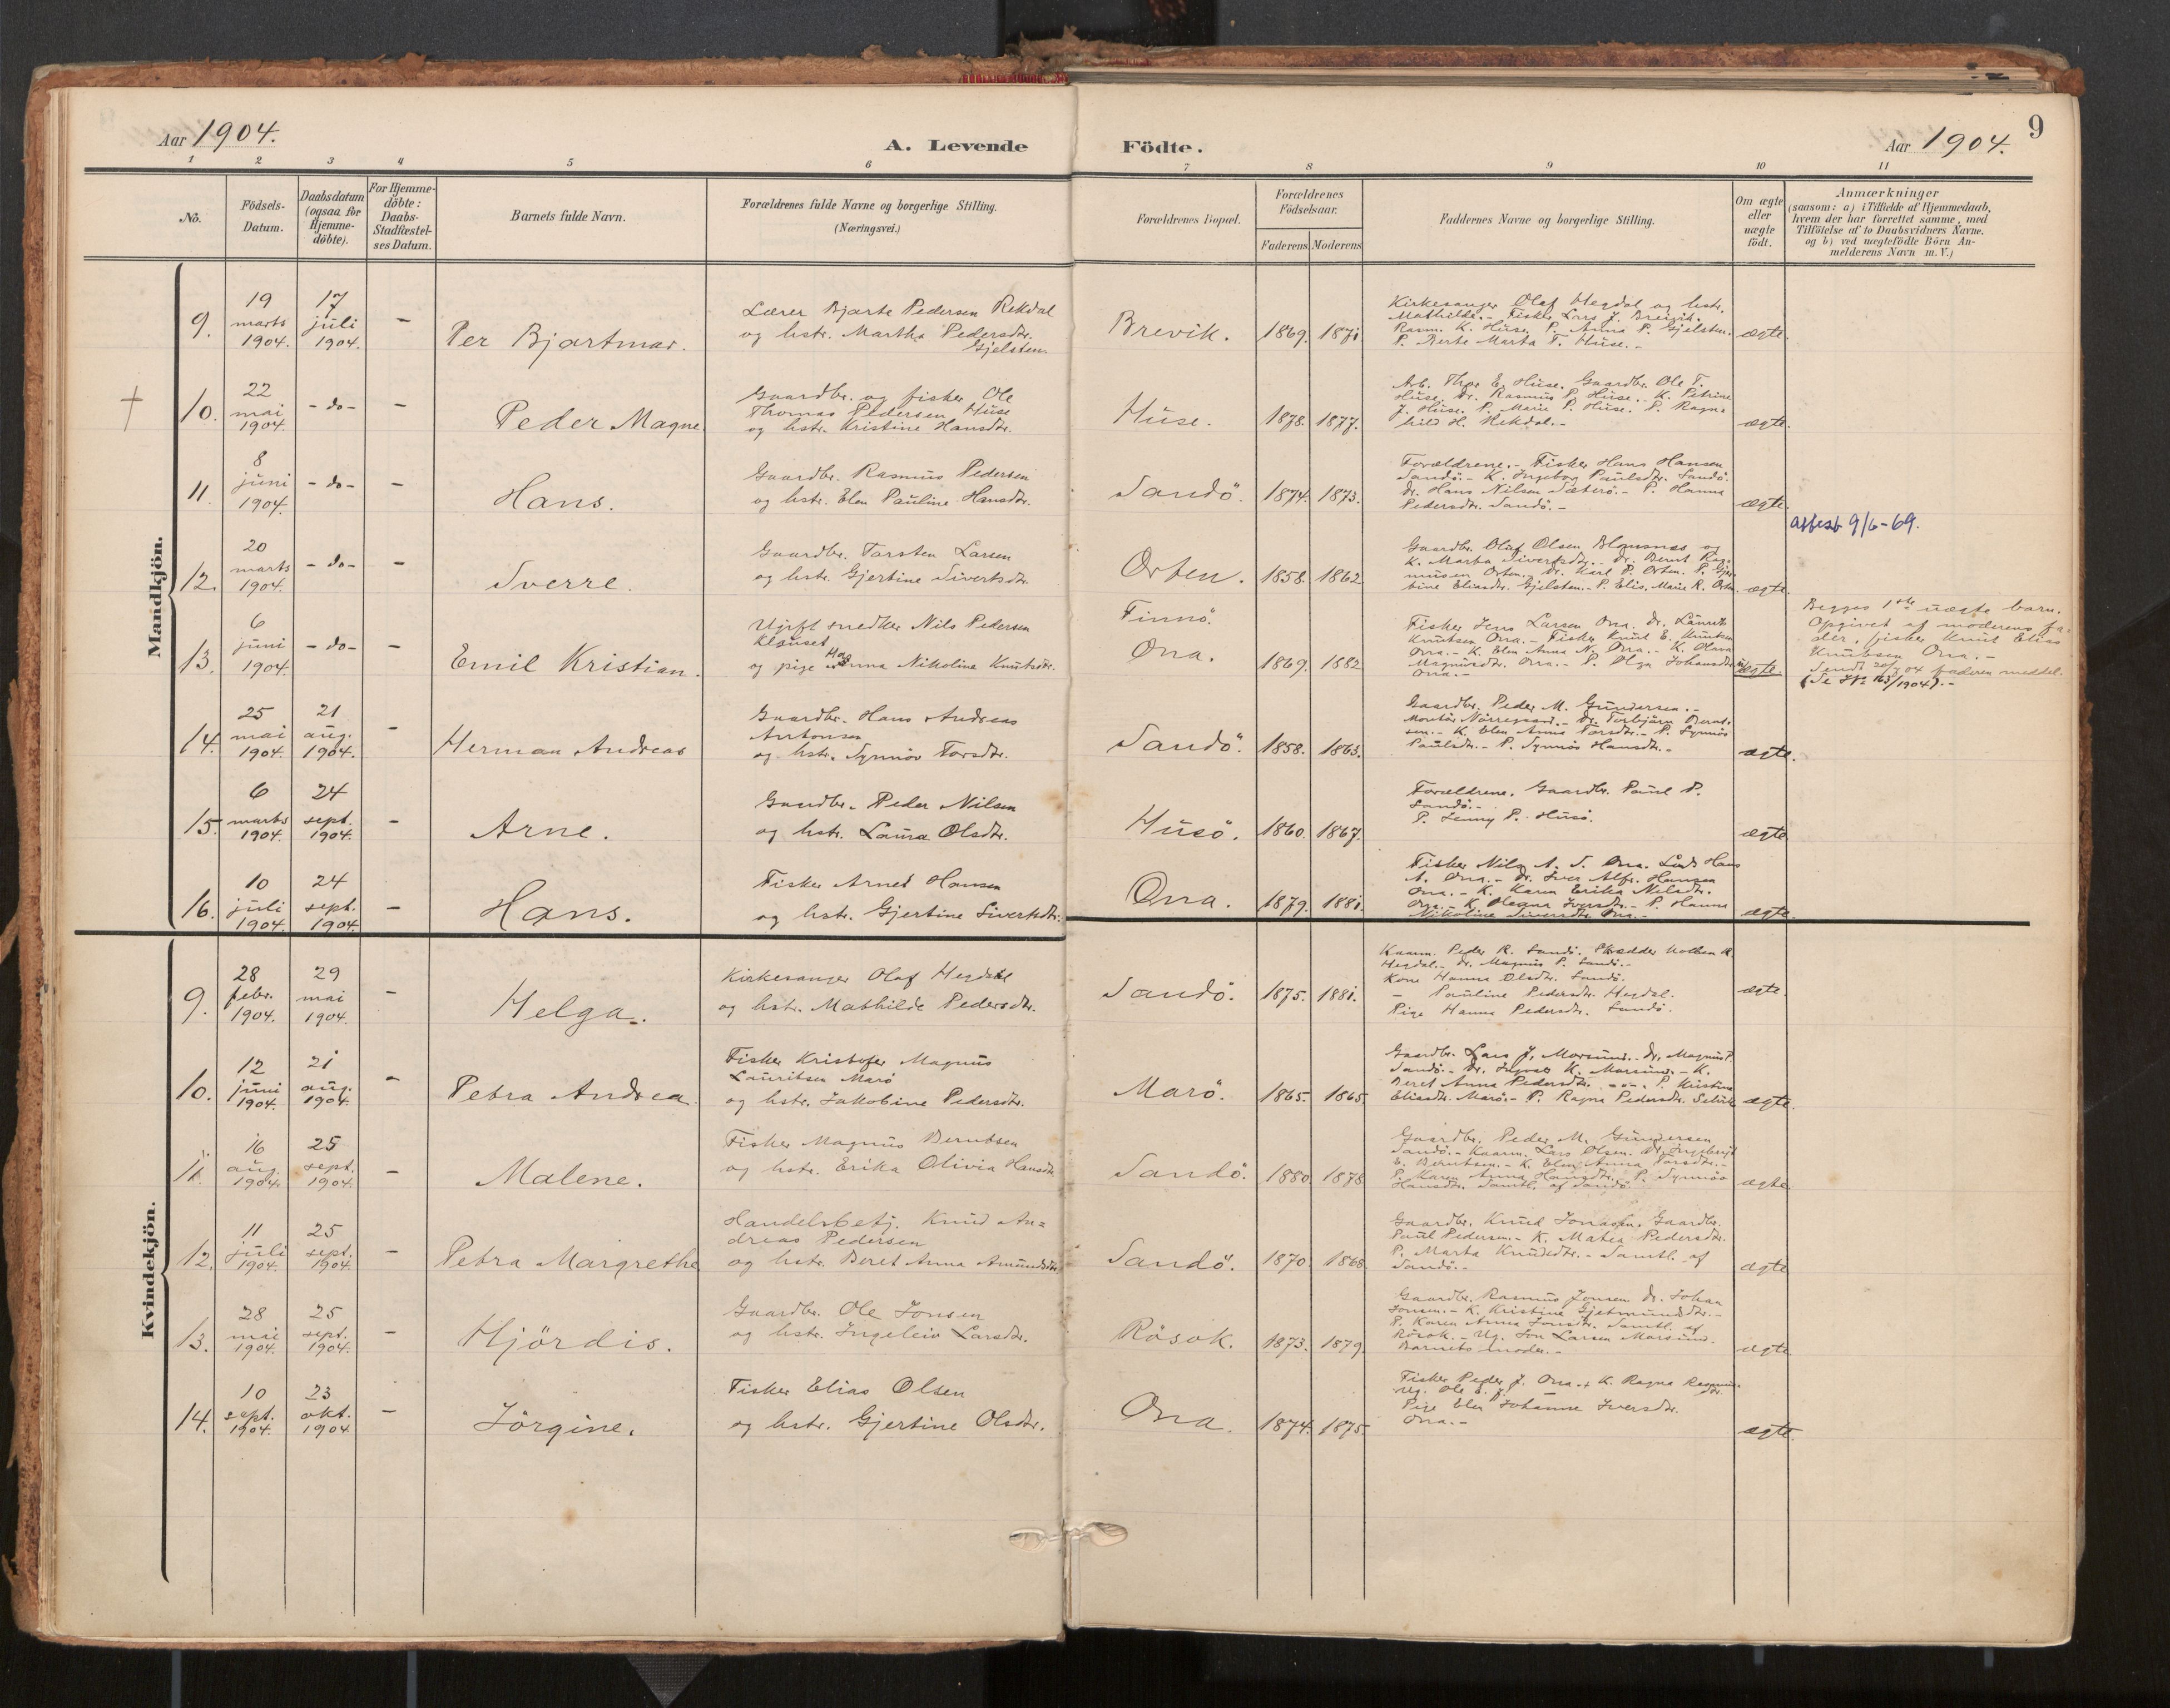 Aar 1904.
A. Levende
Födte.
Aar 1904.
9
1
2
3
4
5
6
7
8
9
10
11
No.
Födsels-
Datum.
Daabsdatum
(ogsaa for
Hjemme-
döbte).
For Hjemme-
döbte:
Daabs-
Stadfæstel-
ses Datum.
Barnets fulde Navn.
Forældrenes fulde Navne og borgerlige Stilling.
(Næringsvei.)
Forældrenes Bopæl.
Forældrenes
Födselsaar.
Faderens
Moderens
Faddernes Navne og borgerlige Stilling.
Om ægte
eller
uægte
födt.
Anmærkninger
(saasom: a) i Tilfælde af Hjemmedaab,
hvem der har forrettet samme, med
Tilföielse af to Daabsvidners Navne.
og b) ved uægtefödte Börn An-
melderens Navn m. V.)
Mandkjön.
9.
19
marts
1904.
17
juli
1904.
-
Per Bjartmar.
Lærer Bjarte Pedersen Rekdal
og hstr. Martha Pedersdtr.
Gjelsten.
Brevik.
1869.
1871.
Kirkesanger Olaf Hegdal og hstr.
Mathilde. - Fisker Lars J. Breivik.
Rasm. K. Huse. P. Anna P. Gjelsten.
P. Berte Marta T. Huse. -
ægte.
†
10.
22
mai
1904.
- do -
-
Peder Magne.
Gaardbr. og fisker Ole
Thomas Pedersen Huse
og hstr. Kristine Hansdtr.
Huse.
1878.
1877.
Arb. Thor E. Huse. Gaardbr. Ole T.
Huse. Dr. Rasmus P. Huse. - K. Petrine
J. Huse. P. Marie P. Huse. P. Ragn-
hild H. Rekdal. -
ægte.
11.
8
juni
1904.
- do -
-
Hans.
Gaardbr. Rasmus Pedersen
og hstr. Elen Pauline Hansdtr.
Sandö.
1874.
1873.
Forældrene. - Fisker Hans Hansen
Sandö. - K. Ingebog Paulsdtr. Sandö.
Dr. Hans Nilsen Sæterö. - P. Hanna
Pedersdtr. Sandö. -
ægte.
attest 9/6-69.
12.
20
marts
1904.
- do -
-
Sverre.
Gaardbr. Torsten Larsen
og hstr. Gjertine Sivertsdtr.
Orten.
1858.
1862
Gaardbr. Oluf Olsen og
K. Marta Sivertsdtr. - Dr. Bernt Ras-
musen Orten. Dr. Karl P. Orten. P. Gjer-
tine Eliasdtr. Gjelsten. - P. Elis. Marie R. Orten.
ægte.
13.
6
juni
1904.
- do -
-
Emil Kristian.
Ugift snedker Nils Pedersen
Klauset
og pige Hanna Nikoline Knutsdtr.
Finnö.
Ona.
1869.
1882
Fisker Jens Larsen Ona. Dr. Laurits
Knutsen Ona. - Fisker Knut E. Knutsen
Ona. - K. Elen Anna N. Ona. - K. Olava
Magnusdtr. Ona. - P. Olga Johansdtr.
Ona. -
uægte.
Begges 1ste uægte barn.
Opgivet af moderens fa-
der, fisker Knut Elias
Knutsen Ona. -
Sendt 20/7 04 faderen meddel.
(Se No 163/1904). -
14.
25
mai
1904.
21
aug.
1904.
-
Herman Andreas
Gaardbr. Hans Andreas
Antonsen
og hstr. Synnöv Torsdtr.
Sandö.
1858.
1863.
Gaardbr. Peder M. Gundersen. -
Montör Nörregaard. - Dr. Torbjörn Bernt-
sen. - K. Elen Anna Torsdtr. - P. Synnöv
Paulsdtr. - P. Synnöv Hansdtr. -
ægte.
15.
6
marts
1904.
24
sept.
1904.
-
Arne.
Gaardbr. Peder Nilsen
og hstr. Laura Olsdtr.
Husö.
1860.
1867.
Forældrene. Gaardbr. Paul P.
Sandö. -
P. Jenny P. Husö.
ægte
16.
10
juli
1904.
24
sept.
1904.
-
Hans.
Fisker Arnet Hansen
og hstr. Gjertine Sivertsdtr.
Ona.
1879.
1881.
Fisker Nils A. S. Ona. Hans
A. Ona. - Dr. Iver Alfr. Hansen
Ona. - K. Karen Erika Nilsdtr.
Ona. - K. Olegna Iversdtr. - P. Hanna
Nikoline Siversdtr. Ona. -
ægte.
Kvindekjön.
9.
28
febr.
1904.
29
mai
1904.
-
Helga.
Kirkesanger Olaf Hegdal
og hstr. Mathilde Pedersdtr.
Sandö.
1875.
1881.
Kaarm. Peder R. Sandö. Skrædder
Hegdal. - Dr. Magnus P. Sandö. -
Kone Hanna Olsdtr. Sandö.
- Pauline Pedersdtr. Hegdal.
Pige Hanna Pedersdtr. Sandö.
ægte.
10.
12
juni
1904.
21
aug.
1904.
-
Petra Andrea.
Fisker Kristofer Magnus
Lauritsen Marö
og hstr. Jakobine Pedersdtr.
Marö.
1865.
1865.
Gaardbr. Lars J. Morsund. - Dr. Magnus P.
Sandö. - Dr. Ingvar K. Morsund. - K.
Beret Anna Pedersdtr. -"- P. Kristine
Eliasdtr. Marö. - P. Ragna Pedersdtr.
ægte.
11.
16
aug.
1904.
25
sept.
1904.
-
Malene.
Fisker Magnus Berntsen
og hstr. Erika Olivia Hansdtr.
Sandö.
1880
1878
Gaardbr. Peder M. Gundersen
Sandö. - Kaarm. Lars Olsen. Dr. Ingebrigt
E. Berntsen. - K. Elen Anna Torsdtr. -
P. Karen Anna Hansdtr. - P. Synnöv
Hansdtr. Samtl. af Sandö.
ægte.
12.
11
juli
1904.
25
sept.
1904.
-
Petra Margrethe
Handelsbetj. Knud An=
dreas Pedersen
og hstr. Beret Anna Amundsdtr.
Sandö.
1870.
1868.
Gaardbr. Knud Jonasen. Gaardbr.
Paul Pedersen. - K. Matea Pedersdtr.
P. Marta Knudsdtr. - Samtl. af
Sandö. -
ægte
13.
28
mai
1904.
25
sept.
1904.
-
Hjördis.
Gaardbr. Ole Jonsen
og hstr. Ingeleiv Larsdtr.
Rösok.
1873.
1879.
Gaardbr. Rasmus Jonsen. Dr. Johan
Jonsen. - K. Kristine Gjetmundsdtr. -
P. Karen Anna Jonsdtr. Samtl. af
Rösok. - Ug. Jon Larsen Morsund.
Barnets moder. -
ægte
14.
10
sept.
1904.
23
okt.
1904
-
Jörgine.
Fisker Elias Olsen
og hstr. Gjertine Olsdtr.
Ona.
1874.
1875.
Fisker Peder J. Ona. + K. Ragna Rasmusdtr.
Ug. Ole E. J.
Pige Elen Johanne Iversdtr.
Ona. -
ægte.